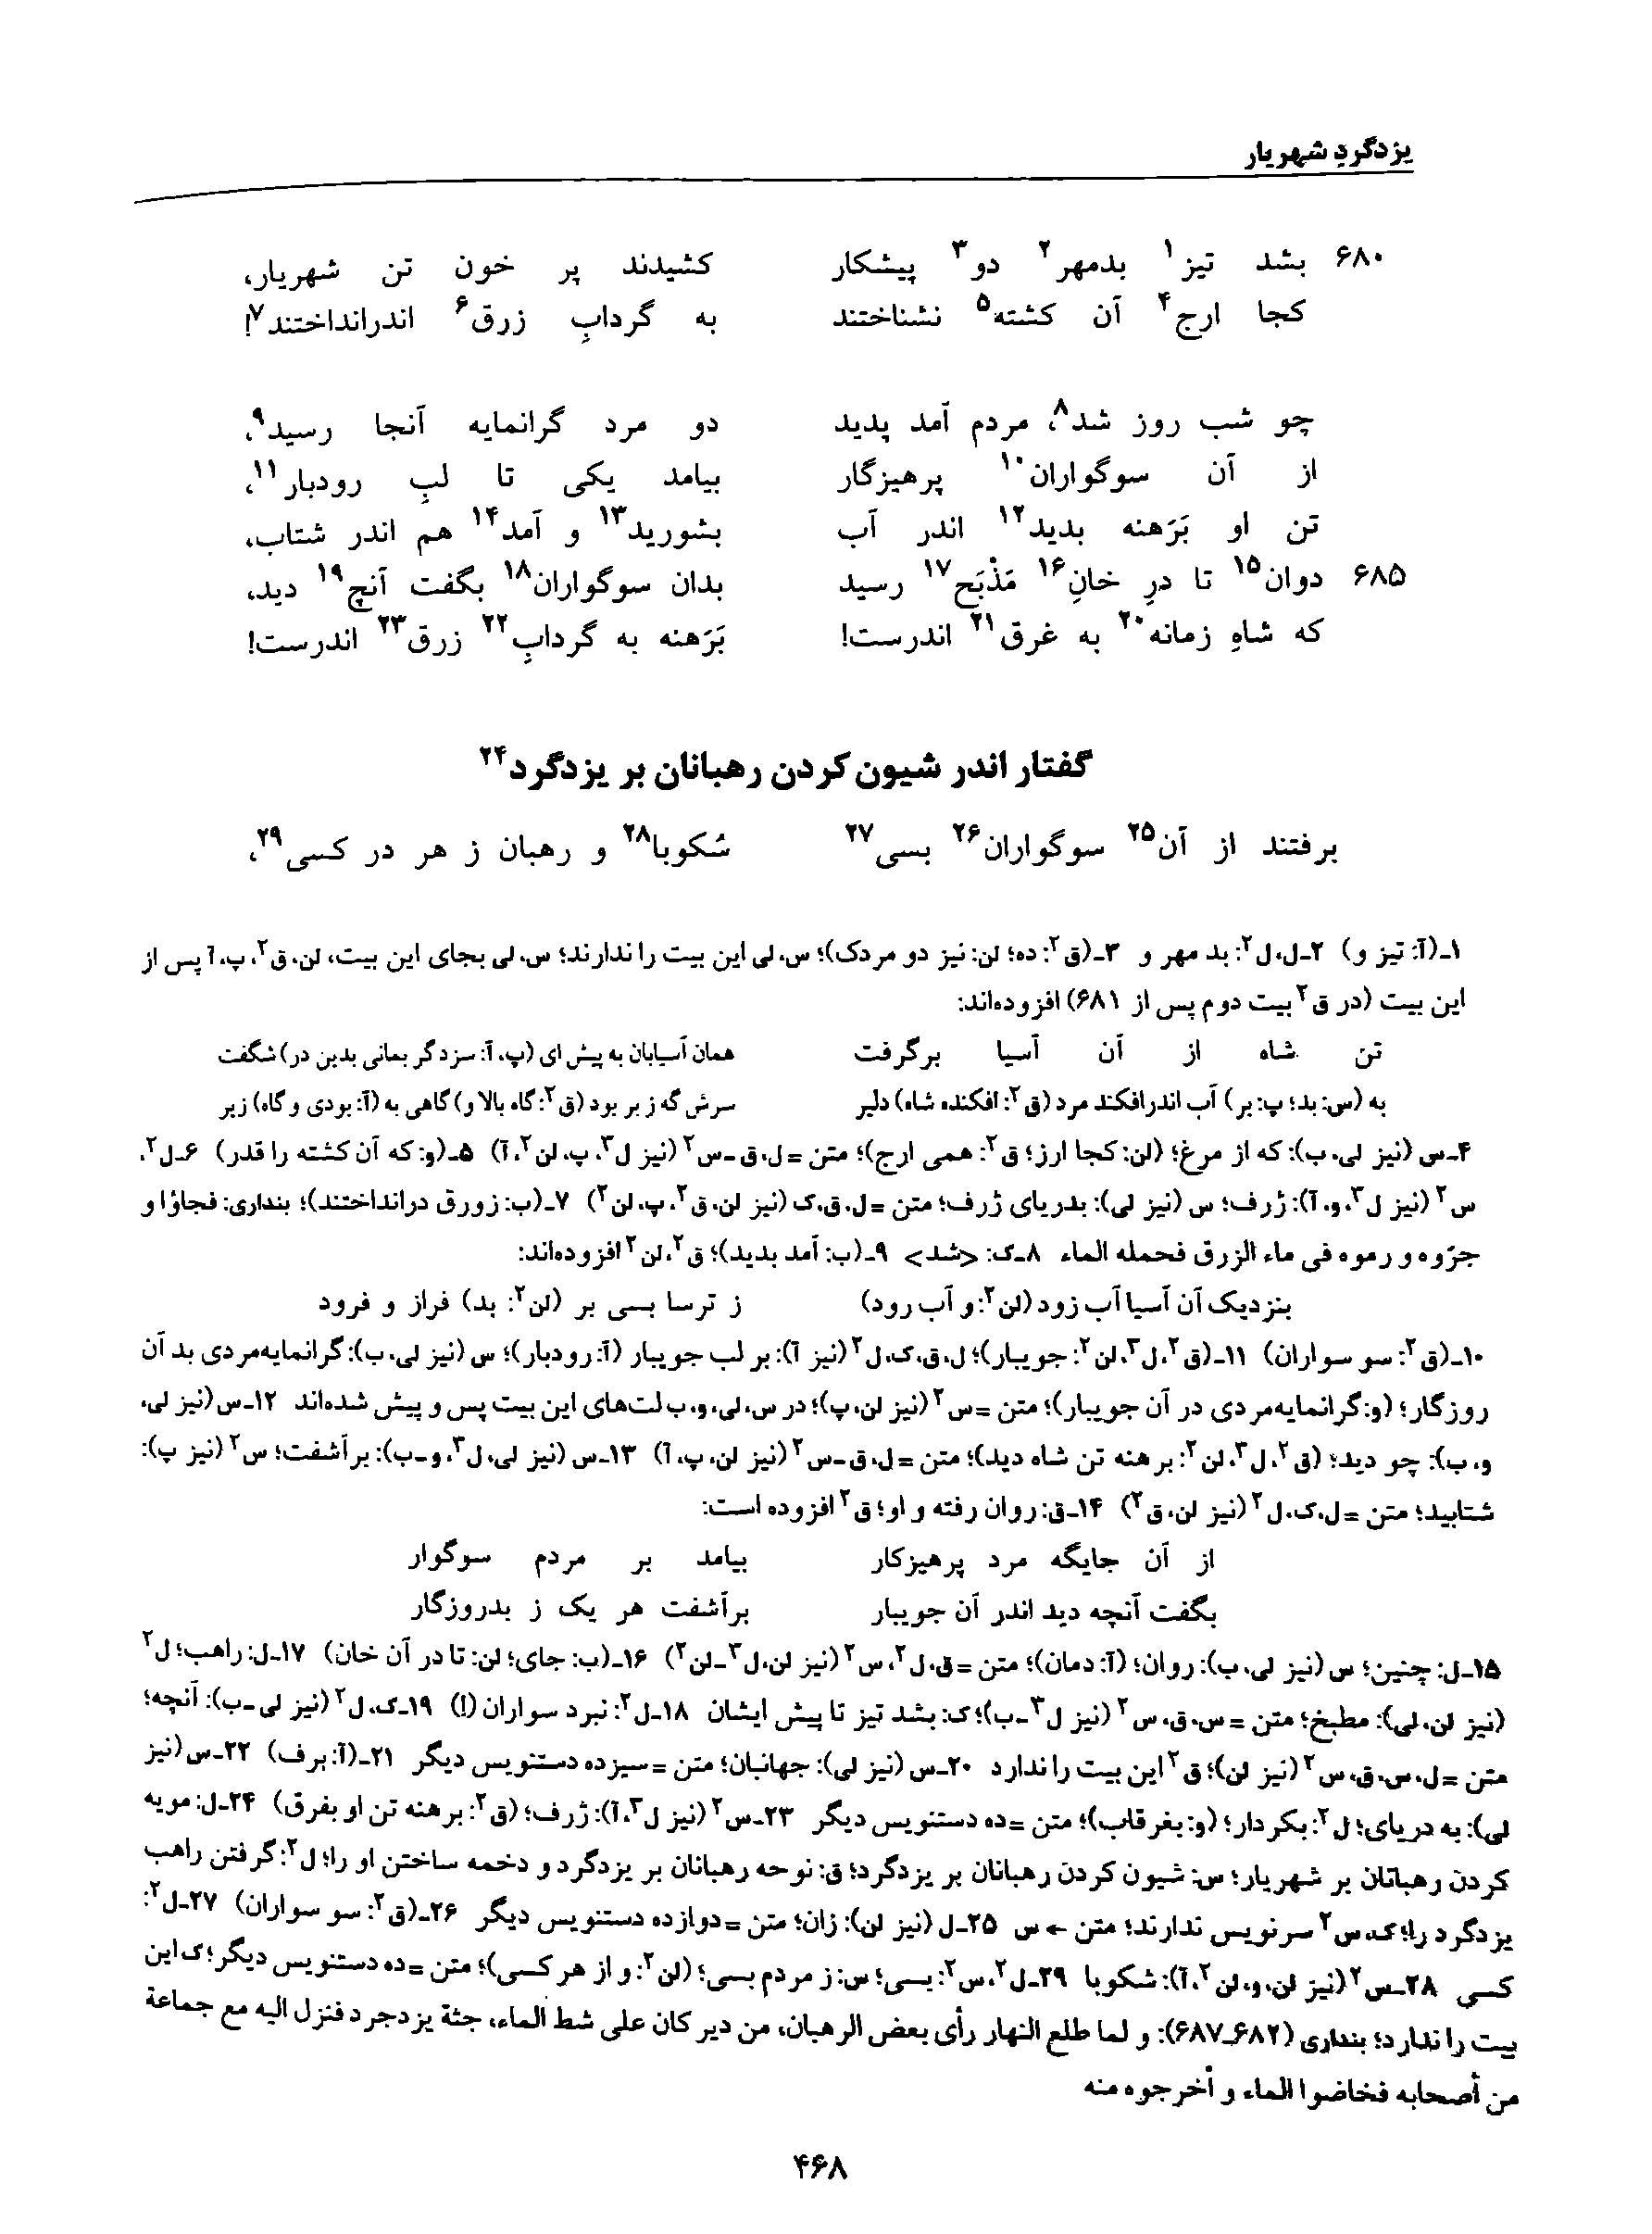 یزدگردِ شهریار
۶۸۰ بشد تیز۱ بدمهر۲ دو۳ پیشکار کشیدند پر خون تن شهریار،
کجا ارج۴ آن کشته۵ نشناختند به گردابِ زرق۶ اندرانداختند۷!
چو شب روز شد۸، مردم آمد پدید دو مرد گرانمایه آنجا رسید۹،
از آن سوگواران۱۰ پرهیزگار بیامد یکی تا لبِ رودبار۱۱،
تن او بَرَهنه بدید۱۲ اندر آب بشورید۱۳ و آمد۱۴ هم اندر شتاب،
۶۸۵ دوان۱۵ تا درِ خانِ۱۶ مَذْبَح۱۷ رسید بدان سوگواران۱۸ بگفت آنچ۱۹ دید،
که شاهِ زمانه۲۰ به غرق۲۱ اندرست! بَرَهنه به گردابِ۲۲ زرق۲۳ اندرست!
گفتار اندر شیون کردن رهبانان بر یزدگرد۲۴
برفتند از آن۲۵ سوگواران۲۶ بسی۲۷ شکوبا۲۸ و رهبان ز هر در کسی۲۹،
۱ـ(آ: تیز و) ۲ـل، ل۲: بد مهر و ۳ـ(ق۲: ده؛ لن: نیز دو مردک)؛ س، لی این بیت را ندارند؛ س، لی بجای این بیت، لن، ق۲، پ، آ پس از
این بیت (در ق۲ بیت دوم پس از ۶۸۱) افزوده‌اند:
تن شاه از آن آسیا برگرفت همان آسیابان به پیش ای (پ، آ: سزد گر بمانی بدین در) شگفت
به (س: بد؛ پ: بر) آب اندرافکند مرد (ق۲: افکنده شاه) دلیر سرش گه زبر بود (ق۲: گاه بالا و) گاهی به (آ: بودی و گاه) زیر
۴ـس (نیز لی، ب): که از مرغ؛ (لن: کجا ارز؛ ق۲: همی ارج)؛ متن = ل، ق ـ س۲ (نیز ل۳، پ، لن۲، آ) ۵ـ(و: که آن کشته را قدر) ۶ـل۲،
س۲ (نیز ل۳، و، آ): ژرف؛ س (نیز لی): بدریای ژرف؛ متن = ل، ق، ک (نیز لن، ق۲، پ، لن۲) ۷ـ(ب: زورق درانداختند)؛ بنداری: فجاؤا و
جرّوه و رموه فی ماء الزرق فحمله الماء ۸ـک: <شد> ۹ـ(ب: آمد بدید)؛ ق۲، لن۲ افزوده‌اند:
بنزدیک آن آسیا آب زود (لن۲: و آب رود) ز ترسا بسی بر (لن۲: بد) فراز و فرود
۱۰ـ(ق۲: سو سواران) ۱۱ـ(ق۲، ل۳، لن۲: جویبار)؛ ل، ق، ک، ل۲ (نیز آ): بر لب جویبار (آ: رودبار)؛ س (نیز لی، ب): گرانمایه‌مردی بد آن
روزگار؛ (و: گرانمایه‌مردی در آن جویبار)؛ متن = س۲ (نیز لن، پ)؛ در س، لی، و، ب لت‌های این بیت پس و پیش شده‌اند ۱۲ـس (نیز لی،
و، ب): چو دید؛ (ق۲، ل۳، لن۲: برهنه تن شاه دید)؛ متن = ل، ق ـ س۲ (نیز لن، پ، آ) ۱۳ـس (نیز لی، ل۳، و ـ ب): برآشفت؛ س۲ (نیز پ):
شتابید؛ متن = ل، ک، ل۲ (نیز لن، ق۲) ۱۴ـق: روان رفته و او؛ ق۲ افزوده است:
از آن جایگه مرد پرهیزکار بیامد بر مردم سوگوار
بگفت آنچه دید اندر آن جویبار برآشفت هر یک ز بدروزگار
۱۵ـل: چنین؛ س (نیز لی، ب): روان؛ (آ: دمان)؛ متن = ق، ل۲، س۲ (نیز لن، ل۳ ـ لن۲) ۱۶ـ(ب: جای؛ لن: تا در آن خان) ۱۷ـل: راهب؛ ل۲
(نیز لن، لی): مطبخ؛ متن = س، ق، س۲ (نیز ل۳ ـ ب)؛ ک: بشد تیز تا پیش ایشان ۱۸ـل۲: نبرد سواران (!) ۱۹ـک، ل۲ (نیز لی ـ ب): آنچه؛
متن = ل، س، ق، س۲ (نیز لن)؛ ق۲ این بیت را ندارد ۲۰ـس (نیز لی): جهانبان؛ متن = سیزده دستنویس دیگر ۲۱ـ(آ: برف) ۲۲ـس (نیز
لی): به دریای؛ ل۲: بکردار؛ (و: بغرقاب)؛ متن = ده دستنویس دیگر ۲۳ـس۲ (نیز ل۳، آ): ژرف؛ (ق۲: برهنه تن او بفرق) ۲۴ـل: مویه
کردن رهبانان بر شهریار؛ س: شیون کردن رهبانان بر یزدگرد؛ ق: نوحه رهبانان بر یزدگرد و دخمه ساختن او را؛ ل۲: گرفتن راهب
یزدگرد را؛ ک، س۲ سرنویس ندارند؛ متن ← س ۲۵ـل (نیز لن): زان؛ متن = دوازده دستنویس دیگر ۲۶ـ(ق۲: سو سواران) ۲۷ـل۲:
کسی ۲۸ـس۲ (نیز لن، و، لن۲، آ): شکوبا ۲۹ـل۲، س۲: یسی؛ س: ز مردم بسی؛ (لن۲: و از هر کسی)؛ متن = ده دستنویس دیگر؛ ک این
بیت را ندارد؛ بنداری (۶۸۲ـ۶۸۷): و لما طلع النهار رأی بعض الرهبان، من دیر کان علی شط الماء، جثة یزدجرد فنزل الیه مع جماعة
من أصحابه فخاضوا الماء و أخرجوه منه
۴۶۸